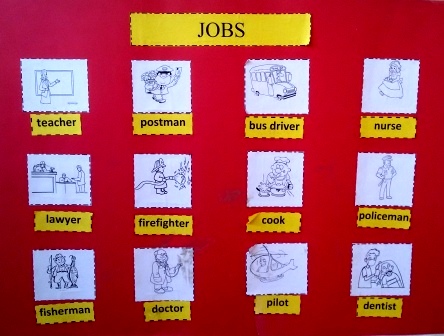 JOBS
teacher
postman
bus driver
nurse
lawyer
firefighter
cook
policeman
fisherman
doctor
pilot
dentist